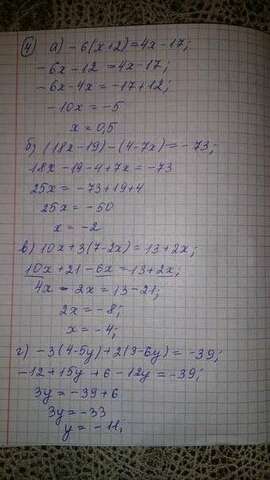 ④ а) -6(x+2)=4x-17;
-6x-12=4x-17;
-6x-4x=-17+12;
-10x=-5
x=0,5
б) (18x-19)-(4-7x)=-73;
18x-19-4+7x=-73
25x=-73+19+4
25x=-50
x=-2
в) 10x+3(7-2x)=13+2x;
10x+21-6x=13+2x;
4x-2x=13-21;
2x=-8;
x=-4;
г) -3(4-5y)+2(3-6y)=-39;
-12+15y+6-12y=-39;
3y=-39+6
3y=-33
y=-11;